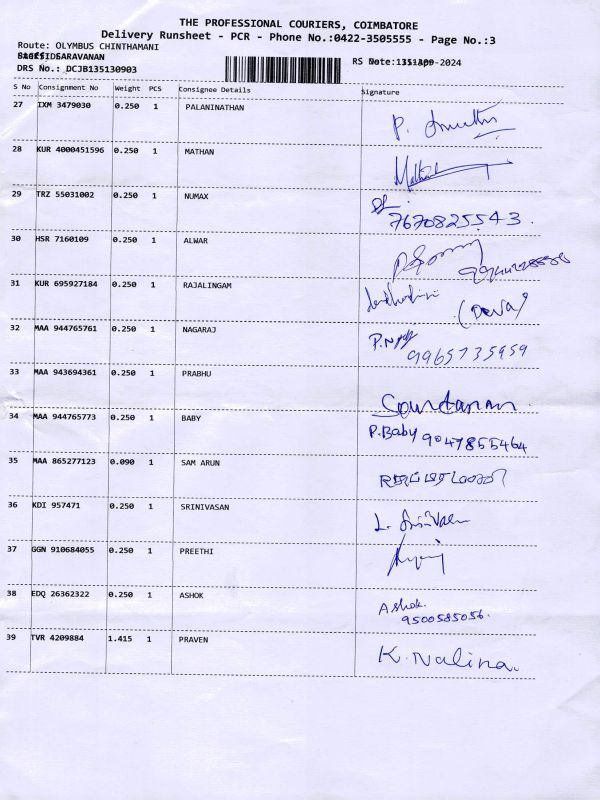 THE PROFESSIONAL COURIERS, COIMBATORE
Delivery Runsheet - PCR - Phone No.:0422-3505555 - Page No.:3
Route: OLYMBUS CHINTHAMANI
SARAVANAN
DRS No.: DCJB135130903
S No Consignment No Weight PCS Consignee Details Signature
27 IXM 3479030 0.250 1 PALANINATHAN P.
28 KUR 4000451596 0.250 1 MATHAN
29 TRZ 55031002 0.250 1 NUMAX 7670825543.
30 HSR 7160109 0.250 1 ALWAR
31 KUR 695927184 0.250 1 RAJALINGAM (Deva)
32 MAA 944765761 0.250 1 NAGARAJ 9965735959
33 MAA 943694361 0.250 1 PRABHU
34 MAA 944765773 0.250 1 BABY P.Baby 9047855464
35 MAA 865277123 0.090 1 SAM ARUN
36 KDI 957471 0.250 1 SRINIVASAN
37 GGN 910684055 0.250 1 PREETHI
38 EDQ 26362322 0.250 1 ASHOK Ashok.
9500585056.
39 TVR 4209884 1.415 1 PRAVEN K. Nalina.